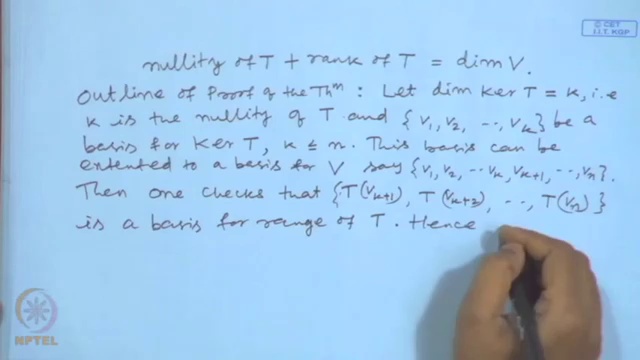 © CET
I.I.T. KGP
nullity of T + rank of T = dim V.
Outline of Proof of the Thm : Let dim Ker T = k, i.e
k is the nullity of T and {v1, v2, ..., vk} be a
basis for Ker T, k ≤ n. This basis can be
extented to a basis for V say {v1, v2, ... vk, vk+1, ..., vn}.
Then one checks that {T(vk+1), T(vk+2), ..., T(vn)}
is a basis for range of T. Hence
NPTEL